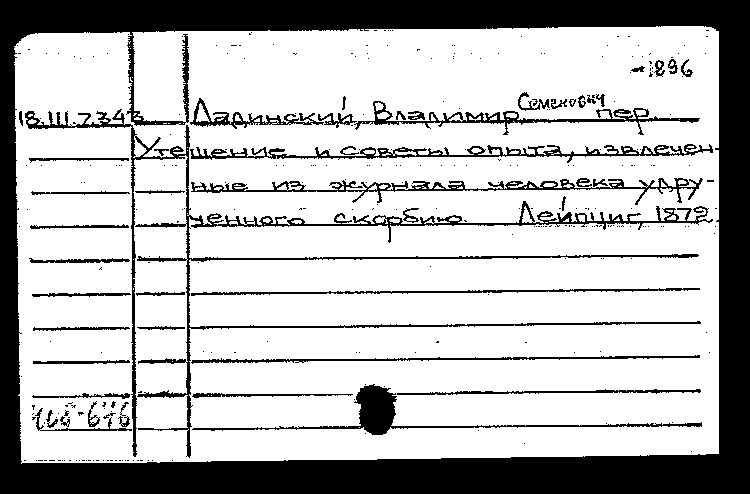 -1896
18.III.7.343 Ладинский, Владимир Семенович пер.
Утешение и советы опыта, извлечен-
ные из журнала человека удру-
ченного скорбию. Лейпциг, 1872.
468-646